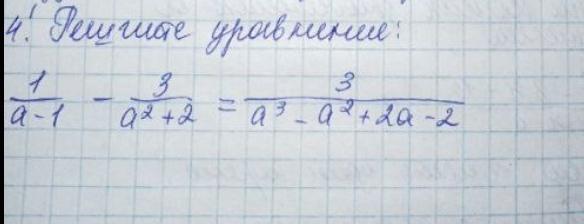 4! Решите уравнение:
1/(a-1) - 3/(a²+2) = 3/(a³-a²+2a-2)